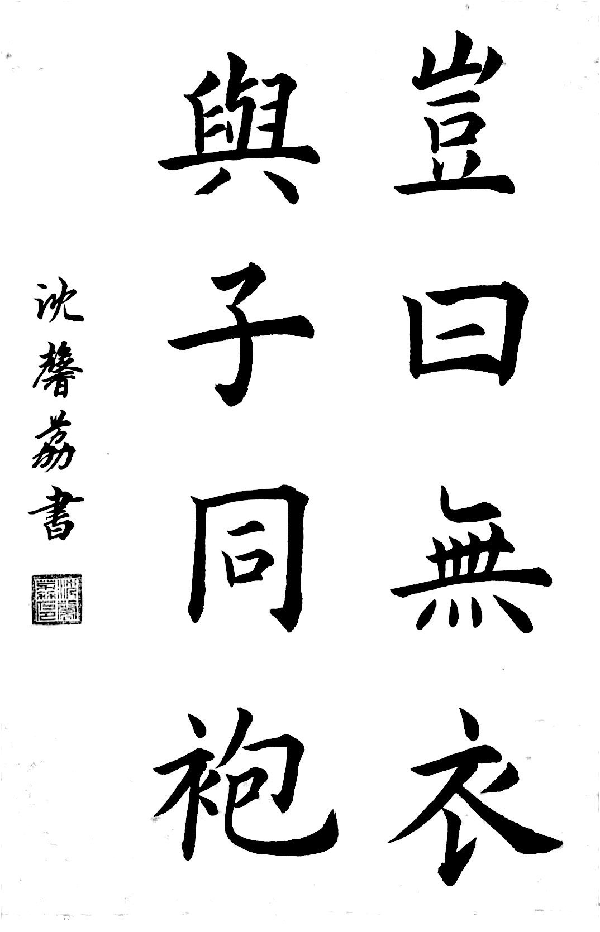 豈曰無衣
與子同袍
沈馨荔書